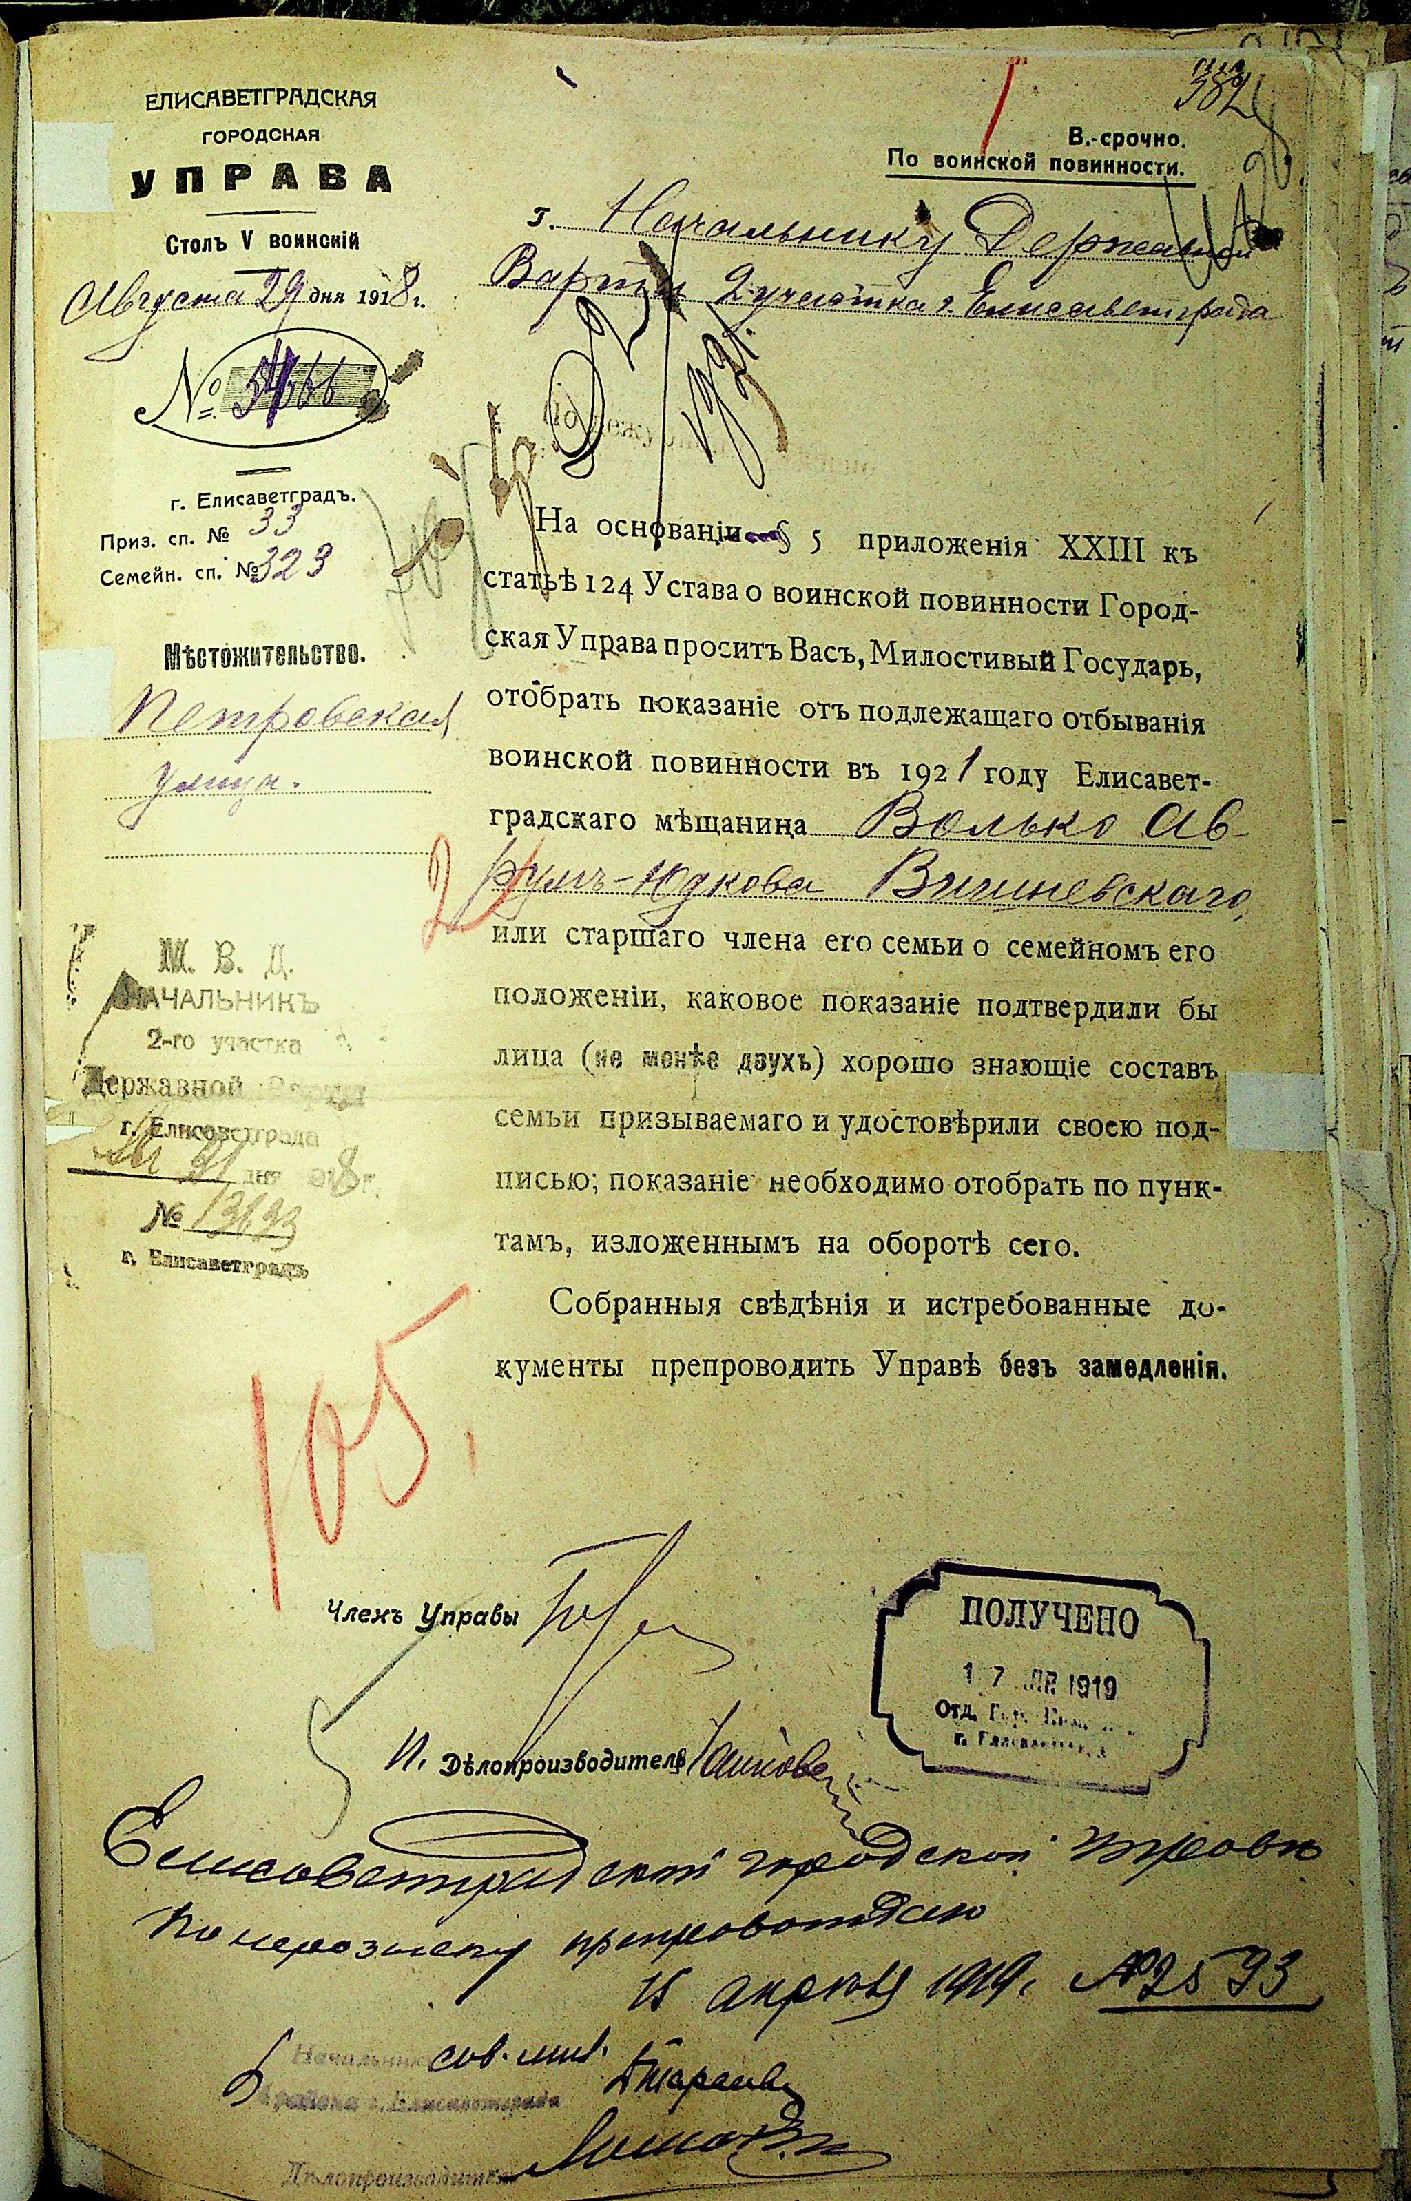 382
ЕЛИСАВЕТГРАДСКАЯ
ГОРОДСКАЯ
УПРАВА
Столъ V воинскій
Августа 29 дня 1918 г.
№
г. Елисаветградъ.
Приз. сп. № 33
Семейн. сп. № 323
Мѣстожительство.
Петровская
улица.
В.-срочно.
По воинской повинности.
г. Начальнику Державной
Варты 2 участка г. Елисаветграда
На основаніи § 5 приложенія XXIII къ
статьѣ 124 Устава о воинской повинности Город-
ская Управа проситъ Васъ, Милостивый Государь,
отобрать показаніе отъ подлежащаго отбыванія
воинской повинности въ 1921 году Елисавет-
градскаго мѣщанина Волько Ав-
румъ-Юдкова Вишневскаго,
или старшаго члена его семьи о семейномъ его
положеніи, каковое показаніе подтвердили бы
лица (не менѣе двухъ) хорошо знающіе составъ
семьи призываемаго и удостовѣрили своею под-
писью; показаніе необходимо отобрать по пунк-
тамъ, изложеннымъ на оборотѣ сего.
Собранныя свѣдѣнія и истребованные до-
кументы препроводить Управѣ безъ замедленія.
21
М. В. Д.
НАЧАЛЬНИКЪ
2-го участка
Державной Варты
г. Елисаветграда
31 дня 1918 г.
№ 13693
г. Елисаветградъ
105.
Членъ Управы
И. Дѣлопроизводитель
ПОЛУЧЕНО
17 АПР 1919
Отд. Гор.
г. Елисаветград
Елисаветградской городской управѣ
по препровождаю
15 апрѣля 1919 г. № 2593
Начальник
района г. Елисаветграда
Дѣлопроизводитель